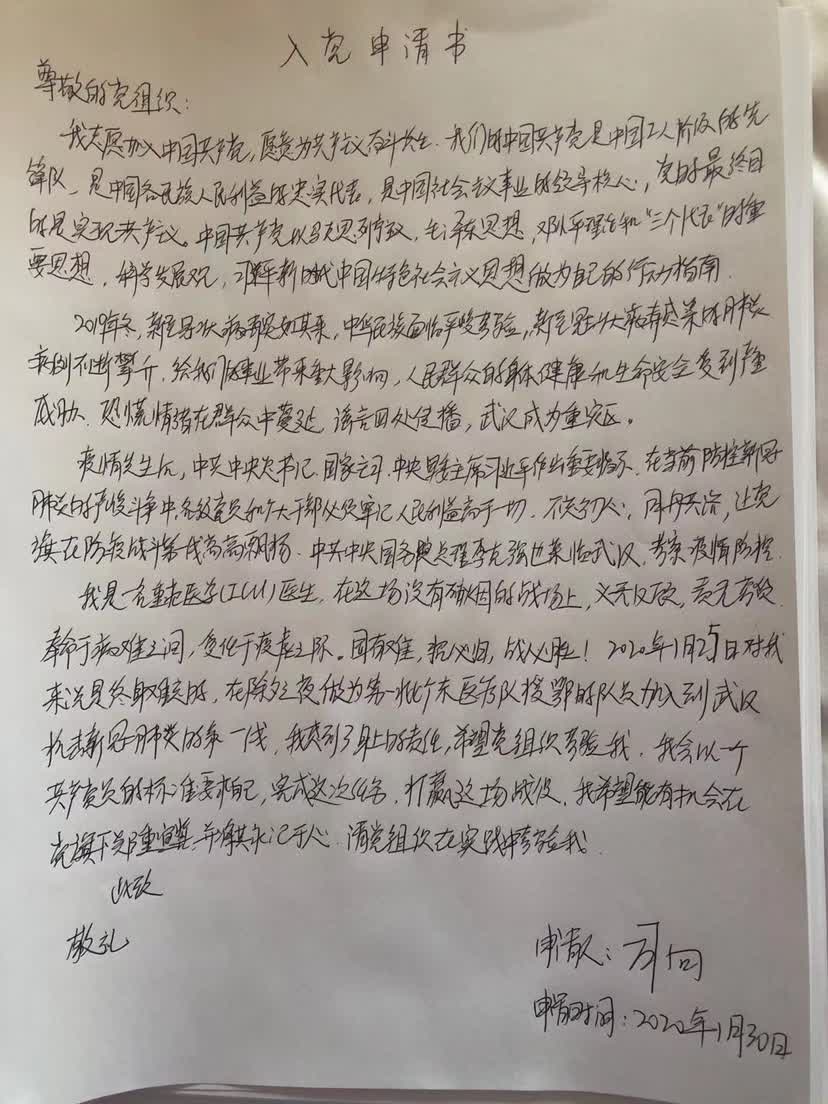 入党申请书
尊敬的党组织:
我志愿加入中国共产党,愿意为共产主义奋斗终生.我们的中国共产党是中国工人阶级的先
锋队,是中国各民族人民利益的忠实代表,是中国社会主义事业的领导核心,党的最终目
的是实现共产主义。中国共产党以马克思列宁主义,毛泽东思想,邓小平理论和“三个代表”的重
要思想,科学发展观,习近平新时代中国特色社会主义思想做为自己的行动指南.
2019年冬,新型冠状病毒突如其来,中华民族面临严峻考验,新型冠状病毒感染的肺炎
病例不断攀升,给我们的事业带来重大影响,人民群众的身体健康和生命安全受到严重
威胁.恐慌情绪在群众中蔓延,谣言四处传播,武汉成为重灾区。
疫情发生后,中共中央总书记.国家主席.中央军委主席习近平作出重要指示.在当前防控新冠
肺炎的严峻斗争中,各级党员和广大干部必须牢记人民利益高于一切.不忘初心,同舟共济,让党
旗在防疫战斗第一线高高飘扬.中共中央国务院总理李克强也来临武汉,考察疫情防控.
我是一名重症医学(ICU)医生,在这场没有硝烟的战场上,义无反顾,
奉命于病难之间,受任于疫虐之际。国有难,招必归,战必胜!2020年1月25日对我
来说是终身难忘的,在除夕之夜做为第一批广东医疗队援鄂的队员加入到武汉
抗击新冠肺炎的第一线,我感到了身上的责任,希望党组织考验我.我会以一个
共产党员的标准要求自己,完成这次任务,打赢这场战役.我希望能有机会在
党旗下郑重宣誓,并将其永记于心.请党组织在实践中考验我.
此致
敬礼
申请人:
申请时间:2020年1月30日